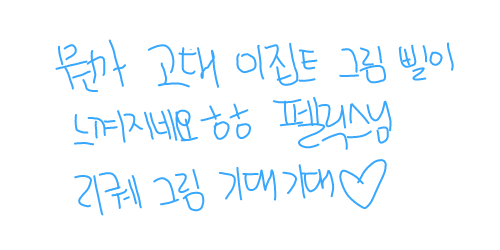 뭔가 고대 이집트 그림 삘이
느껴지네요 ㅎㅎ 펠릭스님
리퀘 그림 기대기대♡